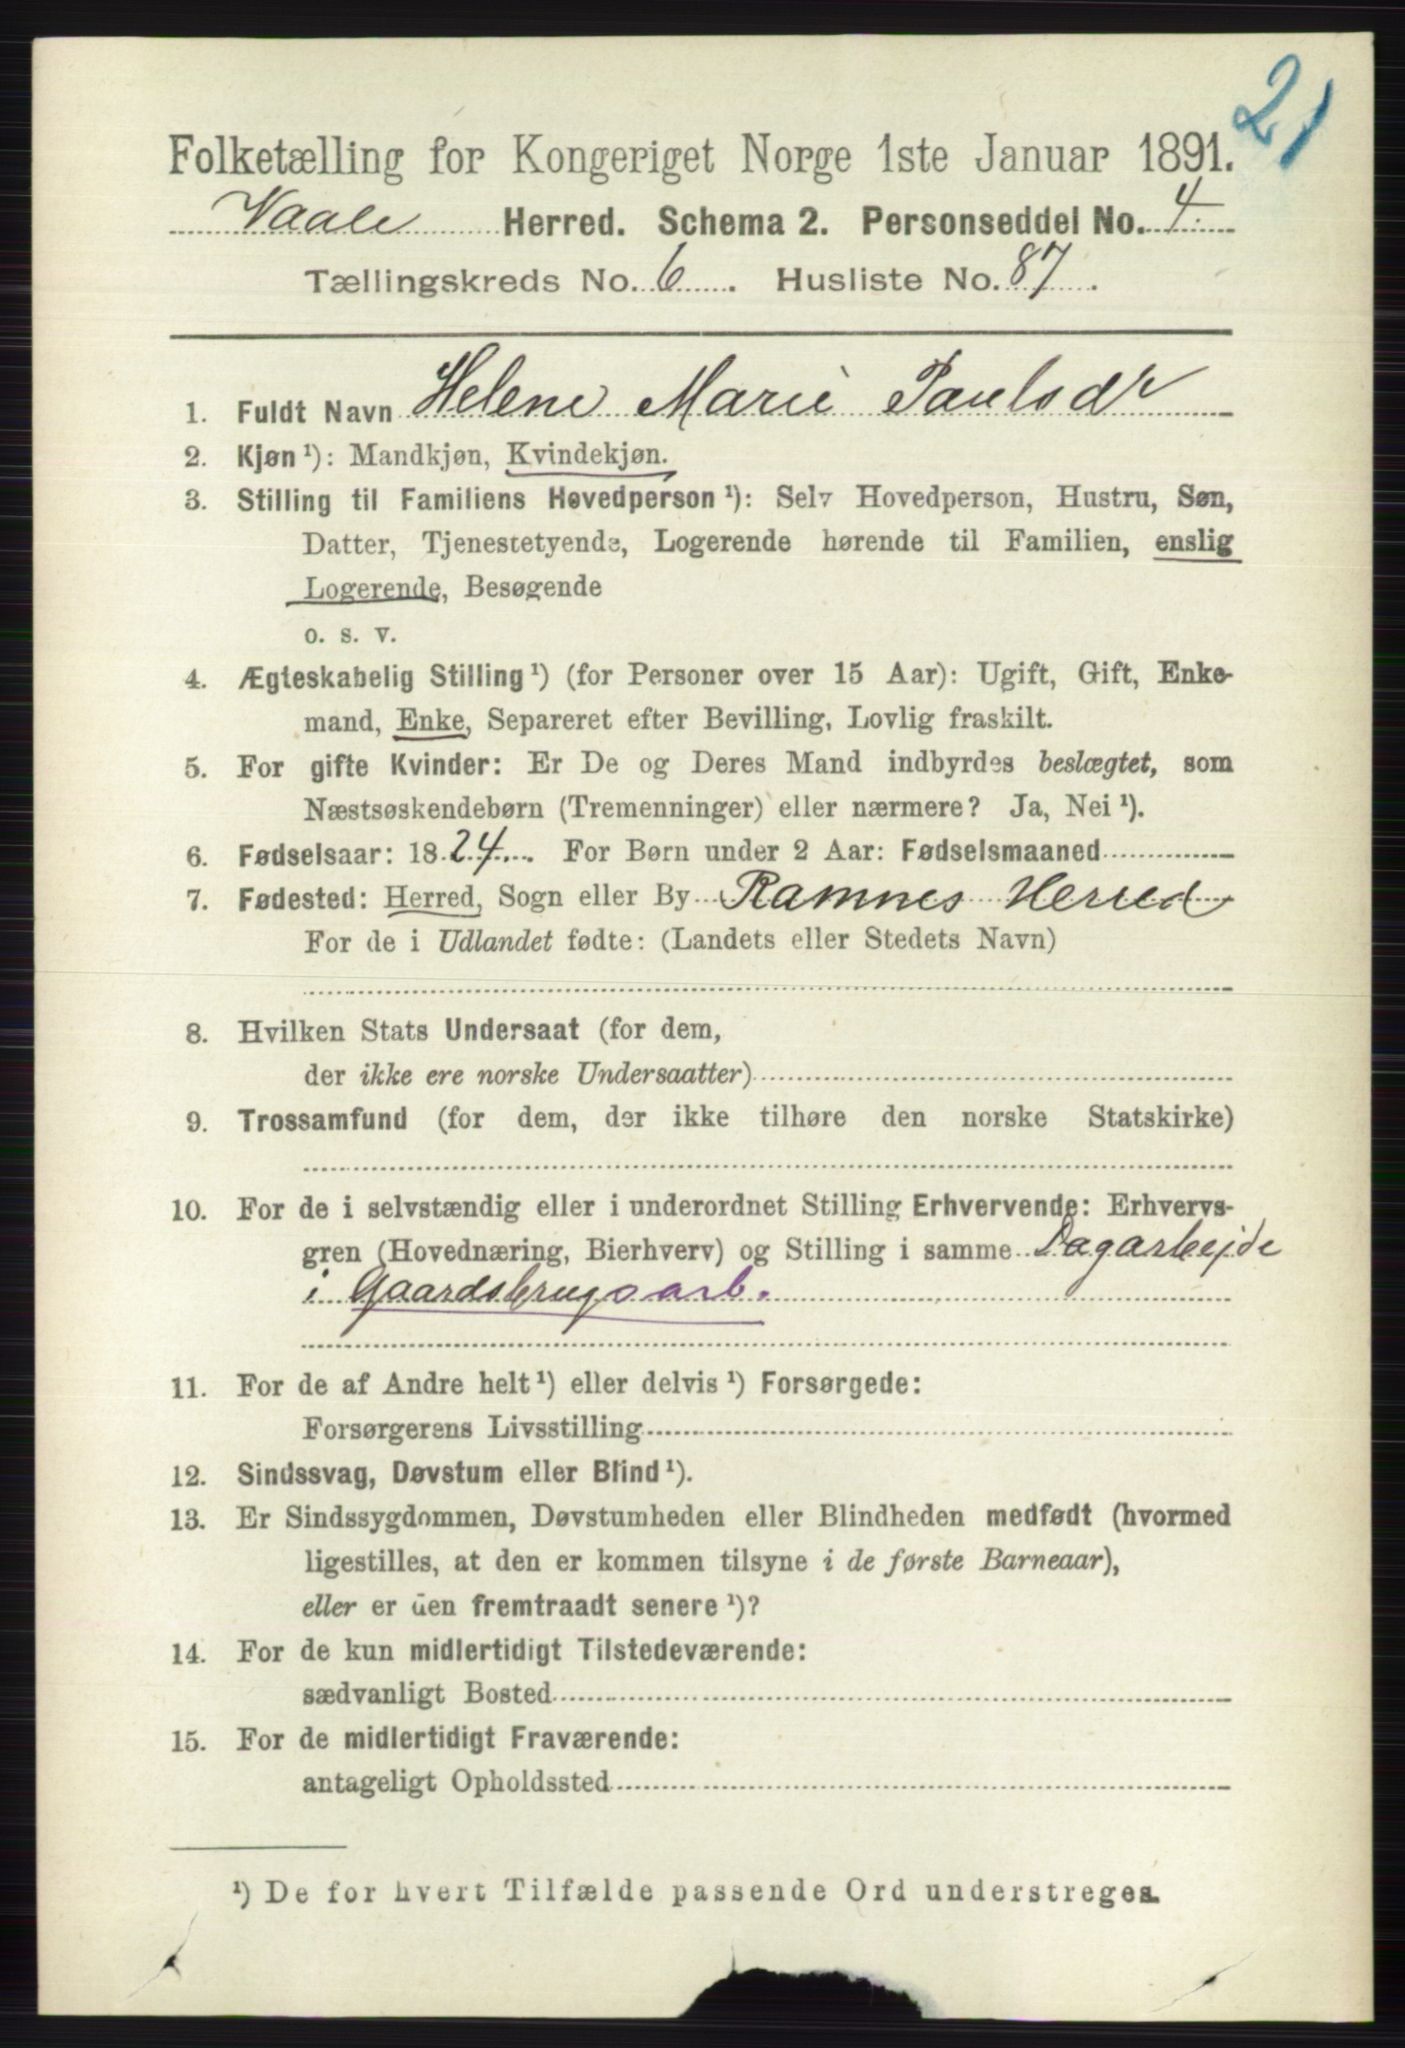 21
Folketælling for Kongeriget Norge 1ste Januar 1891.
Vaale Herred. Schema 2. Personseddel No. 4.
Tællingskreds No. 6. Husliste No. 87.
1. Fuldt Navn Helene Marie Paulsdr
2. Kjøn ¹): Mandkjøn, Kvindekjøn.
3. Stilling til Familiens Hovedperson ¹): Selv Hovedperson, Hustru, Søn,
Datter, Tjenestetyende, Logerende hørende til Familien, enslig
Logerende, Besøgende
o. s. v.
4. Ægteskabelig Stilling ¹) (for Personer over 15 Aar): Ugift, Gift, Enke-
mand, Enke, Separeret efter Bevilling, Lovlig fraskilt.
5. For gifte Kvinder: Er De og Deres Mand indbyrdes beslægtet, som
Næstsøskendebørn (Tremenninger) eller nærmere? Ja, Nei ¹).
6. Fødselsaar: 1824. For Børn under 2 Aar: Fødselsmaaned
7. Fødested: Herred, Sogn eller By Ramnes Herred
For de i Udlandet fødte: (Landets eller Stedets Navn)
8. Hvilken Stats Undersaat (for dem,
der ikke ere norske Undersaatter)
9. Trossamfund (for dem, der ikke tilhøre den norske Statskirke)
10. For de i selvstændig eller i underordnet Stilling Erhvervende: Erhvervs-
gren (Hovednæring, Bierhverv) og Stilling i samme Dagarbejde
i Gaardsbrugsarb.
11. For de af Andre helt ¹) eller delvis ¹) Forsørgede:
Forsørgerens Livsstilling
12. Sindssvag, Døvstum eller Blind ¹).
13. Er Sindssygdommen, Døvstumheden eller Blindheden medfødt (hvormed
ligestilles, at den er kommen tilsyne i de første Barneaar),
eller er den fremtraadt senere ¹)?
14. For de kun midlertidigt Tilstedeværende:
sædvanligt Bosted
15. For de midlertidigt Fraværende:
antageligt Opholdssted
¹) De for hvert Tilfælde passende Ord understreges.